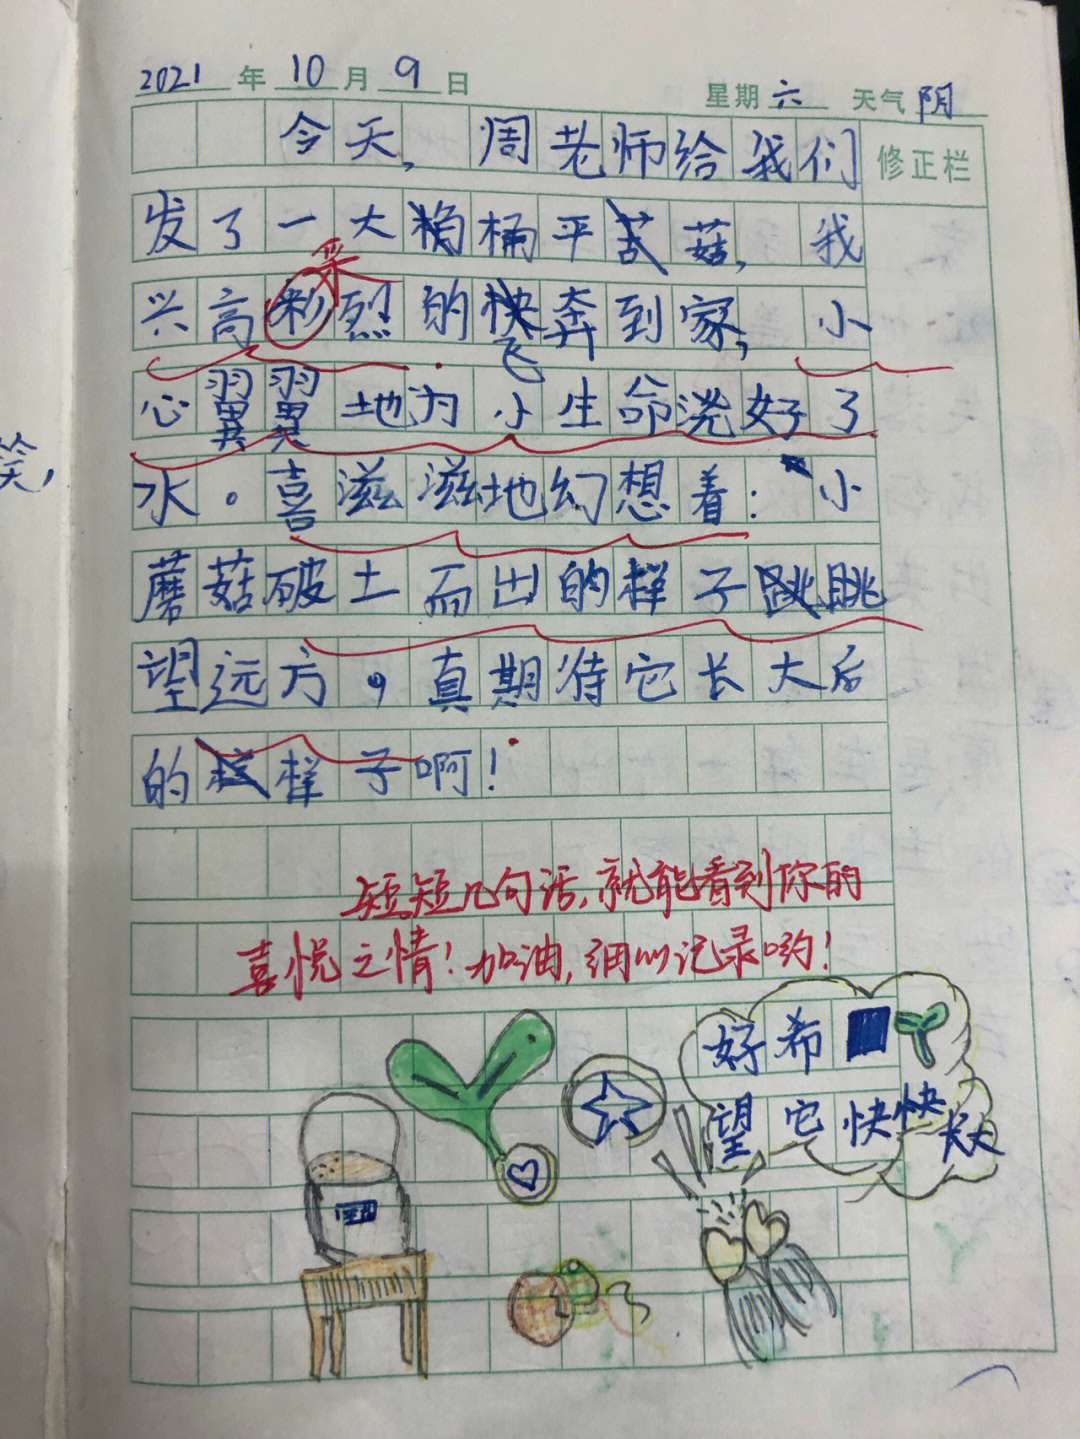 2021年10月9日 星期六 天气阴
今天,周老师给我们 修正栏
发了一大桶平菇,我
采
兴高彩烈的奔到家,小
飞
心翼翼地为小生命浇好了
水。喜滋滋地幻想着:小
蘑菇破土而出的样子眺
望远方,真期待它长大后
的样子啊!
短短几句话,就能看到你的
喜悦之情!加油,细心记录哟!
好希
望它快快长大
笑,